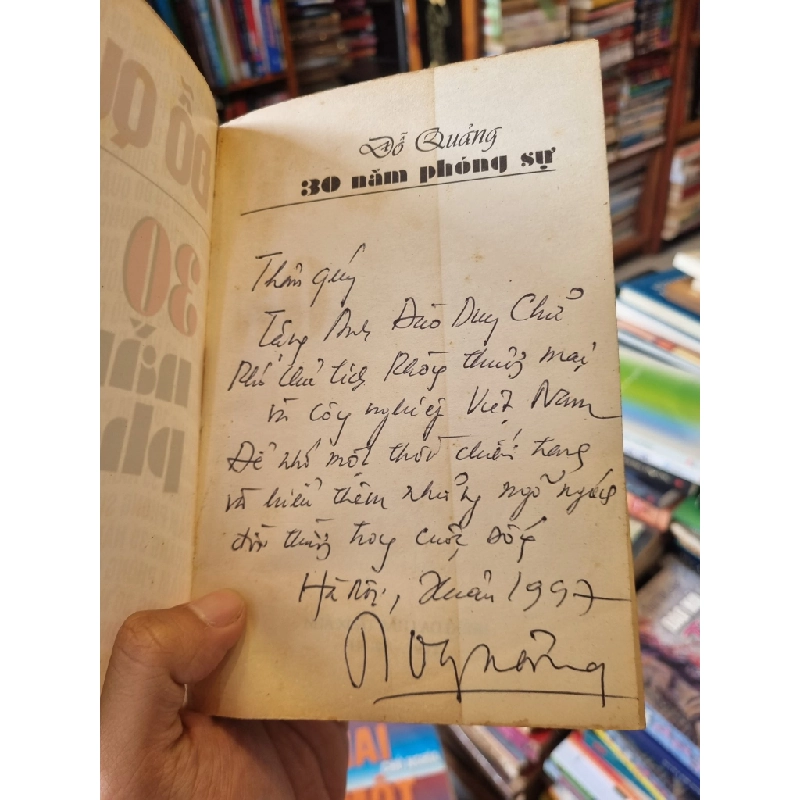 ĐỖ QU
30
năm
ph
Đỗ Quảng
30 năm phóng sự
Thân quý
Tặng Anh Đào Duy Chữ
Phó chủ tịch Phòng thương mại
và công nghiệp Việt Nam
Để nhớ một thời chiến trang
và hiểu thêm những ngõ ngách
đời thường trong cuộc sống
Hà Nội, Xuân 1997